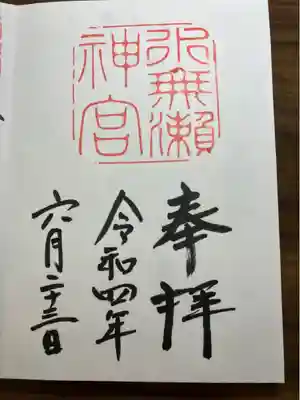 奉拝
水無瀬
神宮
令和四年
六月二十三日